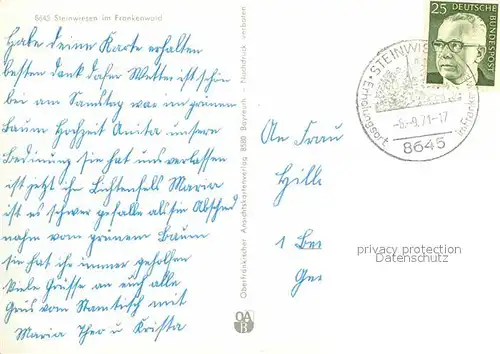 8645 Steinwiesen im Frankenwald
Habe deine Karte erhalten
besten dank dafer Wetter ist schön
bei am Samstag war im grünem
Baum Hochzeit Anita unsere
Bedinung sie hat uns verlassen
ist jetzt ihr Lichtenfels Maria
ist es schwer gefalle als sie Absched
nahm vom grünem Baum
sie hat ihr immer geholfen
Viele Grüsse an euch alle
Grus vom Stamtisch mit
Maria Ther u Krista
Oberfränkischer Ansichtskartenverlag 8580 Bayreuth - Nachdruck verboten
OA
B
25 DEUTSCHE
BUNDESPOST
STEINWIES
Erholungsort
8645
An Frau
Hill
1 Ber
Ger
privacy protection
Datenschutz